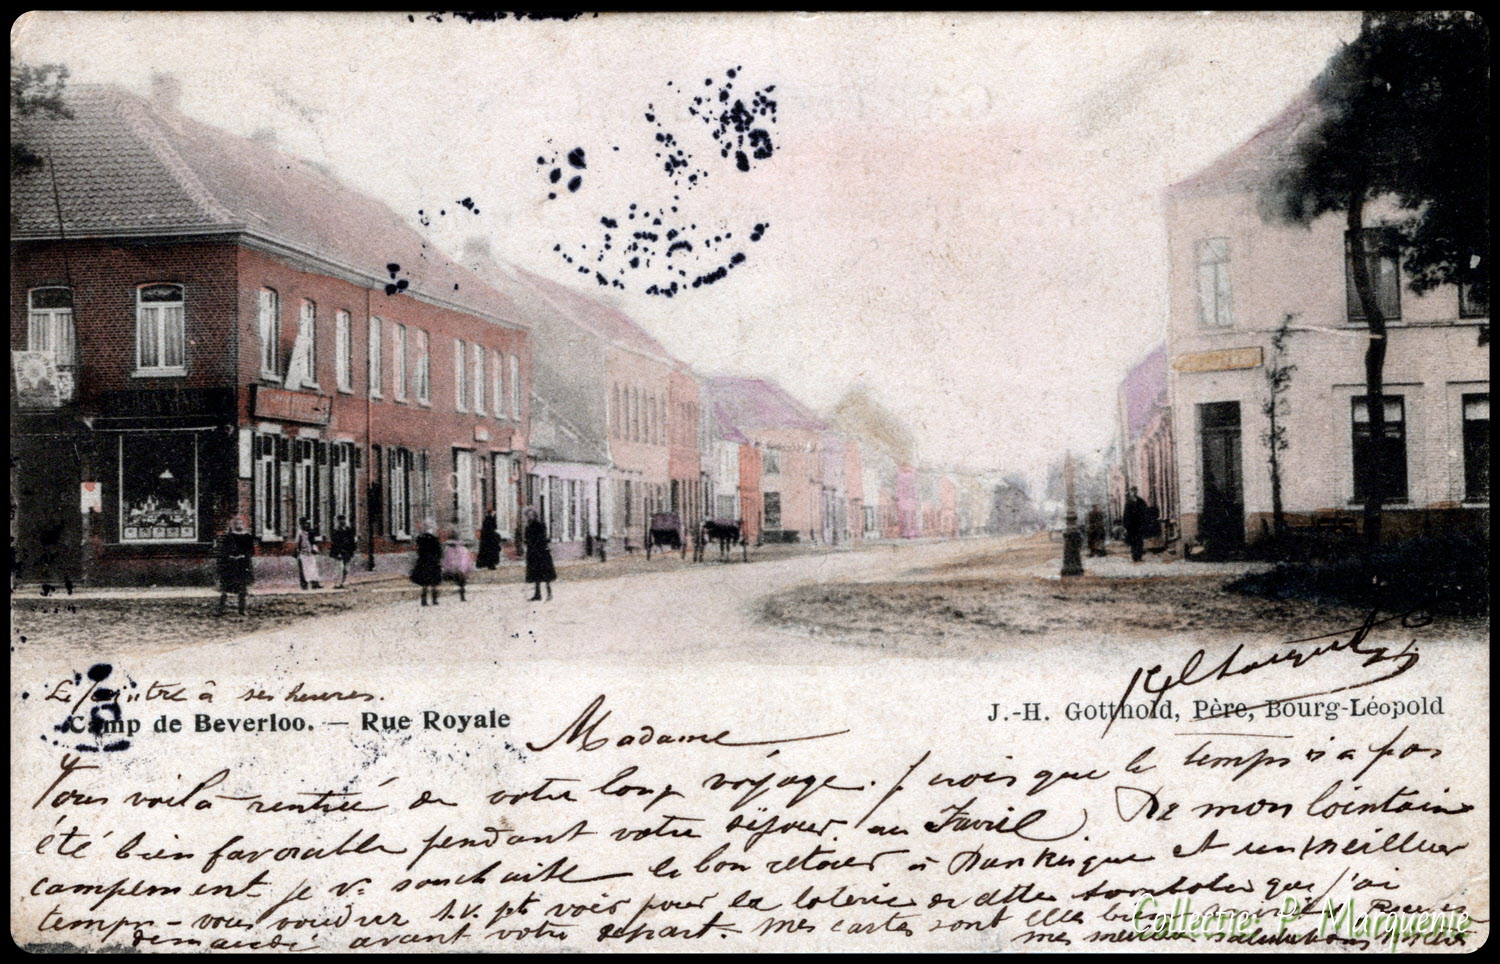 à ses heures.
Camp de Beverloo. — Rue Royale
J.-H. Gotthold, Père, Bourg-Léopold
Madame
Vous voilà rentrée de votre long voyage. Je crois que le temps n'a pas
été bien favorable pendant votre séjour au De mon lointain
campement je vs souhaite le bon retour à Dunkerque et un meilleur
temps - vous voudrez s.v.pt voir pour la loterie de cette tombola que j'ai
demandé avant votre départ. mes cartes sont elles bien
mes meilleures salutations
Collectie: P. Marquenie